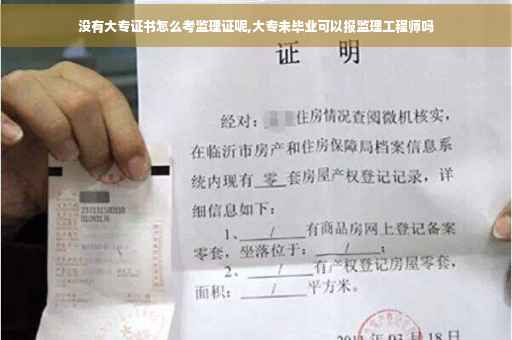 没有大专证书怎么考监理证呢,大专未毕业可以报监理工程师吗
证 明
经对： 住房情况查阅微机核实，
在临沂市房产和住房保障局档案信息系
统内现有 零 套房屋产权登记记录，详
细信息如下：
1、 / 有商品房网上登记备案
零套，坐落位于： / ；
2、 / 有产权登记房屋零套，
面积： / 平方米。
03月18日